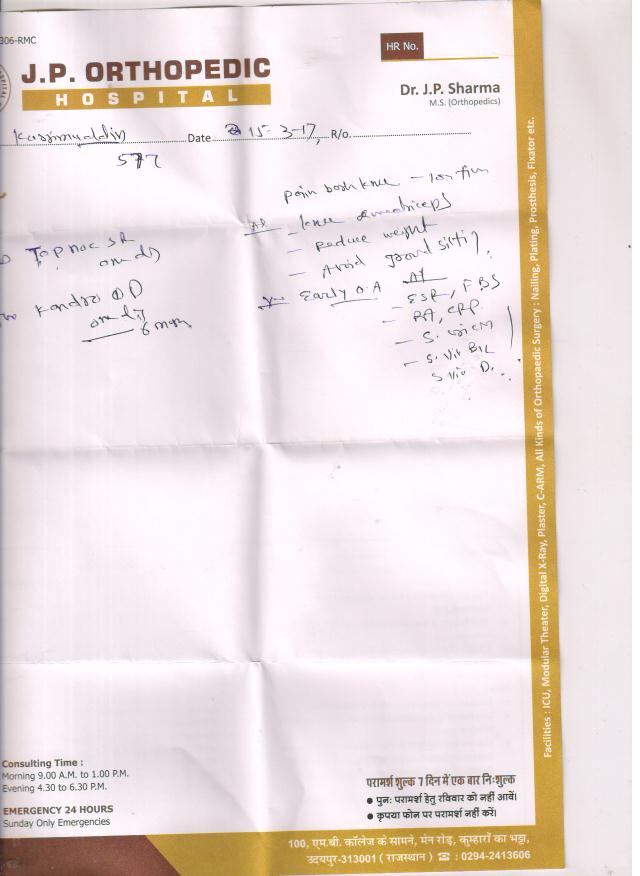 306-RMC
HR No.
J.P. ORTHOPEDIC
HOSPITAL
Dr. J.P. Sharma
M.S. (Orthopedics)
Date 15-3-17, R/o.
577
pain both knee
knee
- Reduce weight
- Avoid ground sitting
Early O.A
- ESR, FBS
- RA, CRP
- S.
- S. Vit B12
S Vit D.
Consulting Time :
Morning 9.00 A.M. to 1.00 P.M.
Evening 4.30 to 6.30 P.M.
EMERGENCY 24 HOURS
Sunday Only Emergencies
परामर्श शुल्क 7 दिन में एक बार निःशुल्क
● पुनः परामर्श हेतु रविवार को नहीं आवें।
● कृपया फोन पर परामर्श नहीं करें।
100, एम.बी. कॉलेज के सामने, मेन रोड़, कुम्हारों का भट्टा,
उदयपुर-313001 ( राजस्थान ) ☎ : 0294-2413606
Facilities : ICU, Modular Theater, Digital X-Ray, Plaster, C-ARM, All Kinds of Orthopaedic Surgery : Nailing, Plating, Prosthesis, Fixator etc.